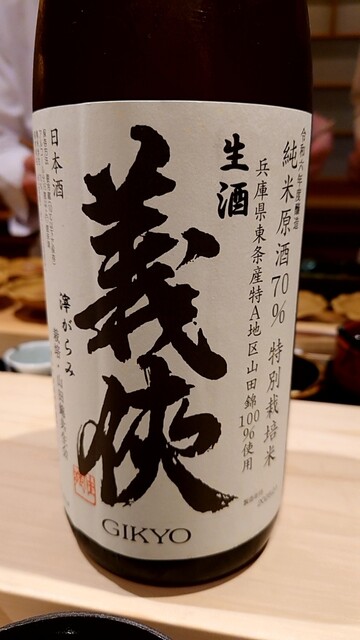 令和六年度醸造
純米原酒70% 特別栽培米
兵庫県東条産特A地区山田錦100%使用
生酒
義侠
GIKYO
日本酒
滓がらみ